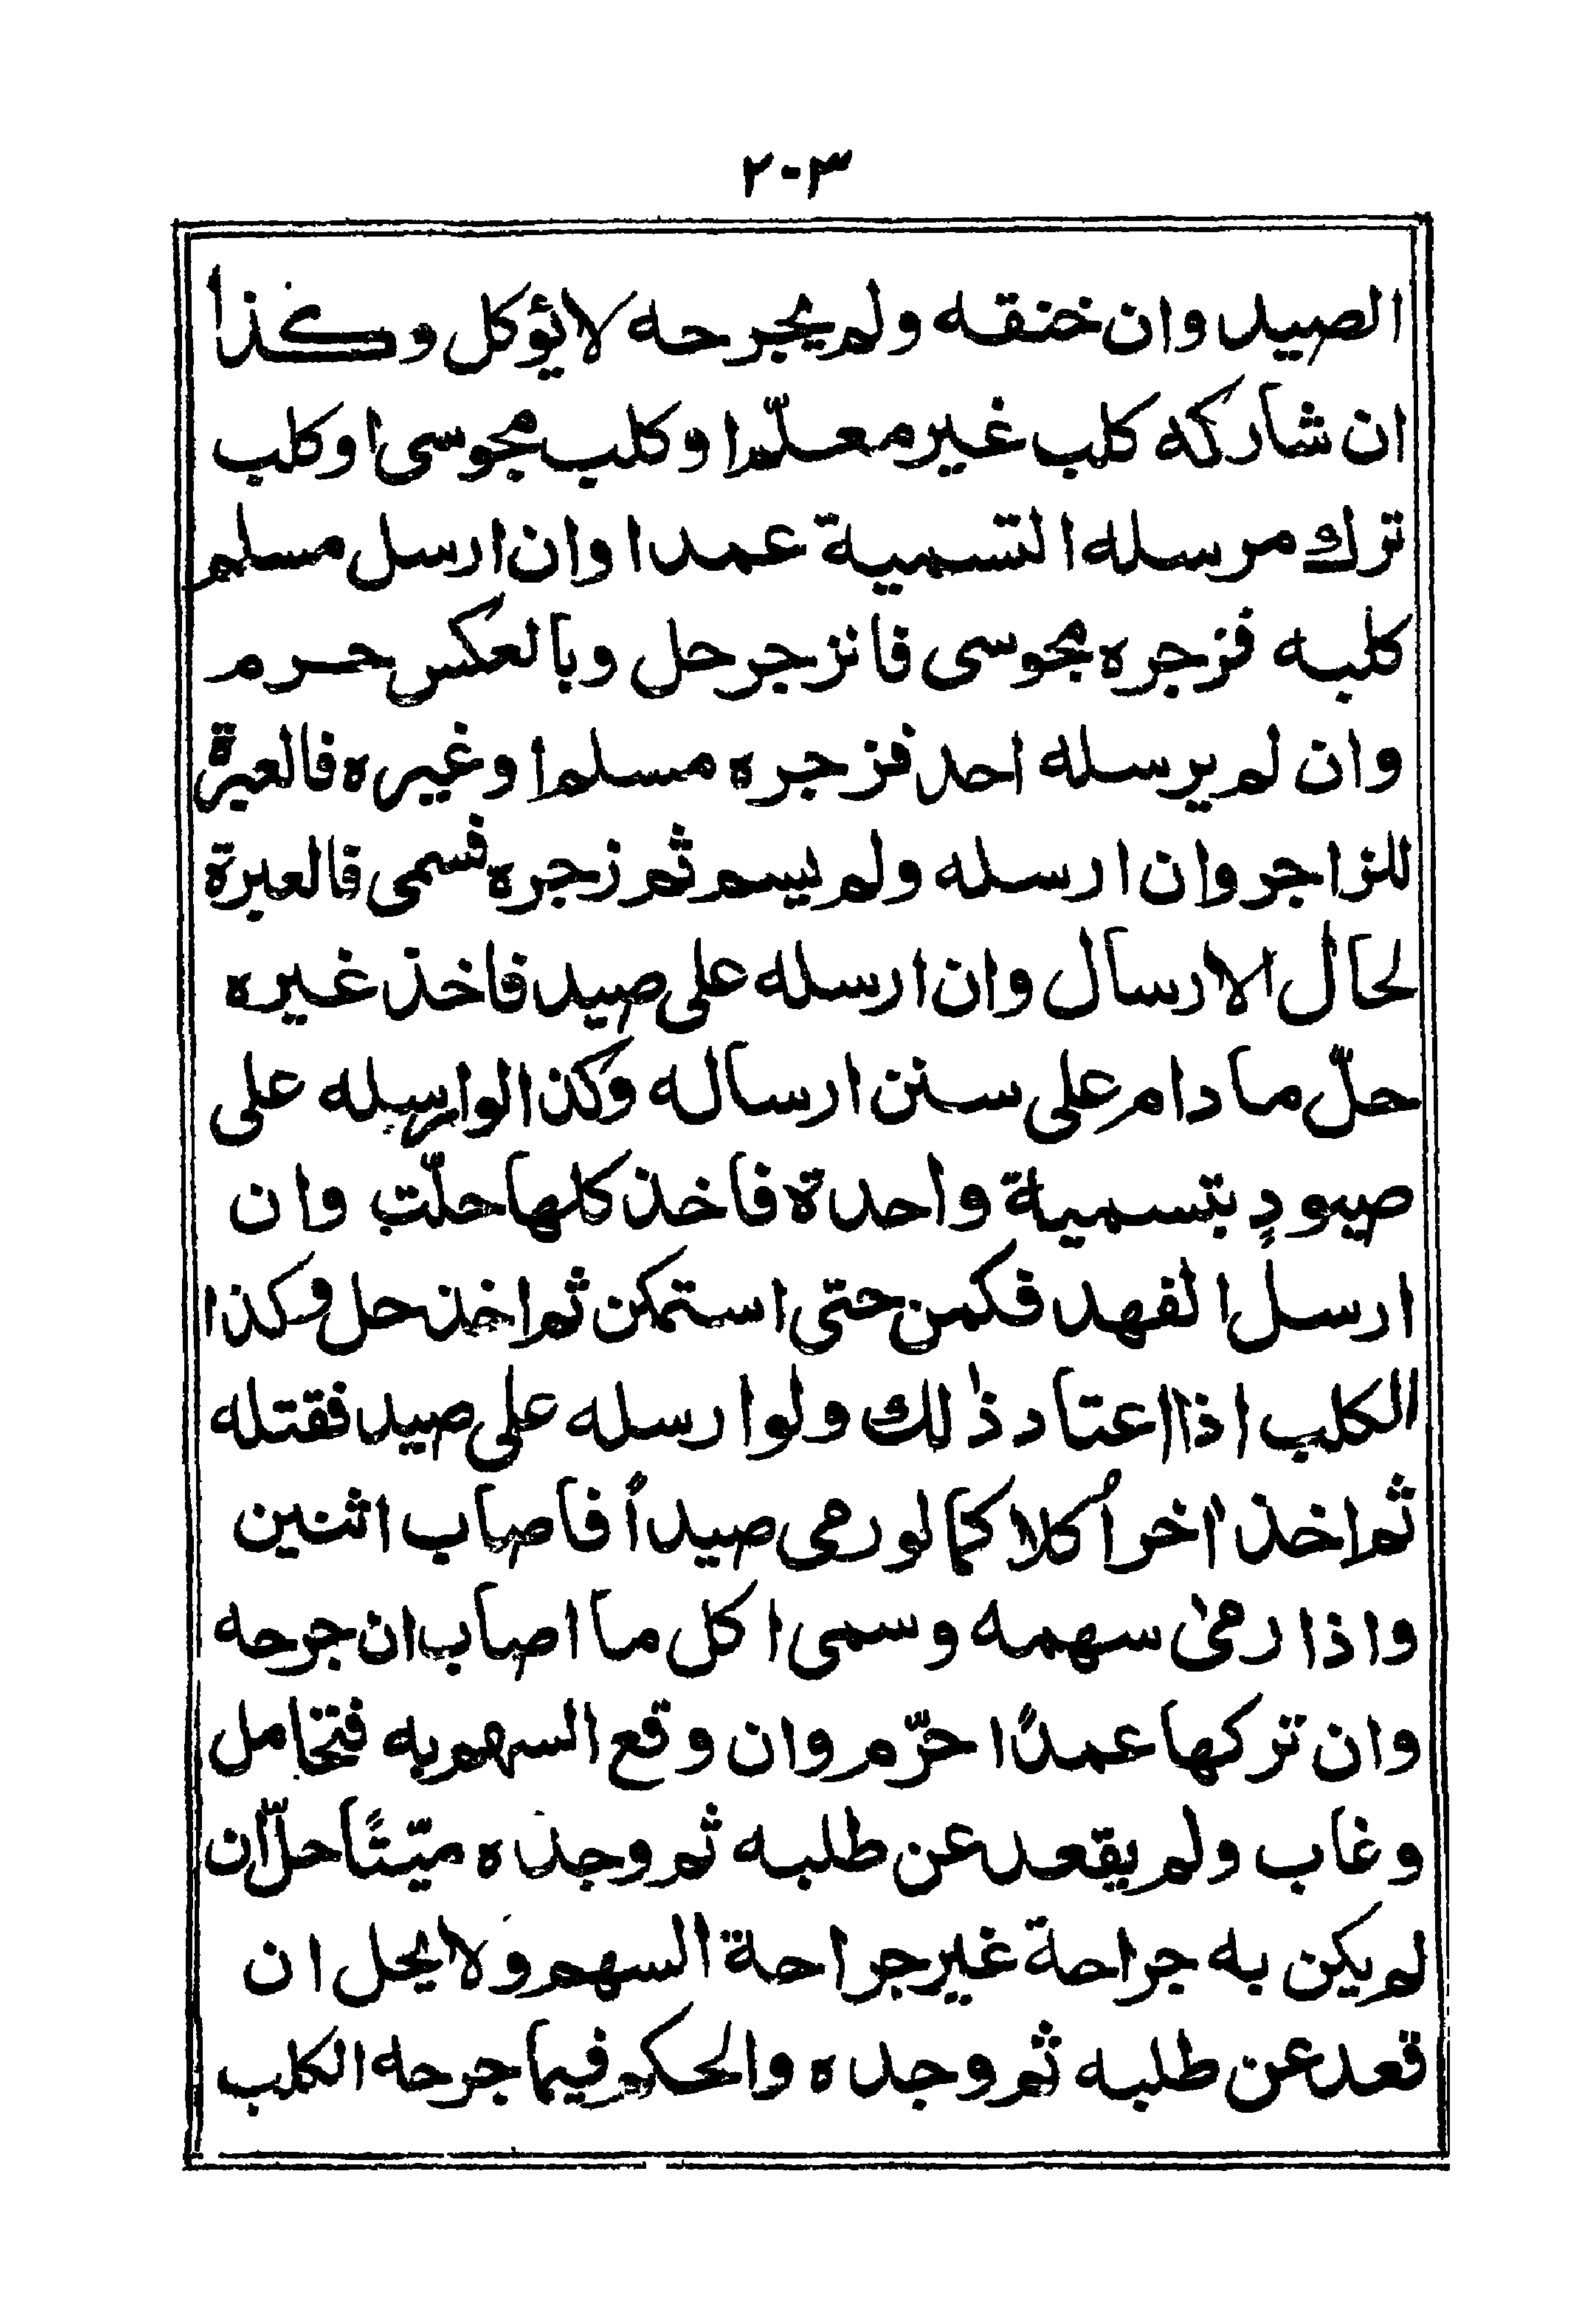 ٢٠٣
الصيد وان خنقه ولم يجرحه لا يؤكل وكذا
ان شاركه كلب غير معلّم او كلب مجوسى او كلب
ترك مرسله التسمية عمدا وان ارسل مسلم
كلبه فزجره مجوسى فانزجر حل وبالعكس حرم
وان لم يرسله احد فزجره مسلم او غيره فالعبرة
للزاجر وان ارسله ولم يسم ثم زجره فسمى فالعبرة
لحال الارسال وان ارسله على صيد فاخذ غيره
حلّ ما دام على سنن ارساله وكذا لو ارسله على
صيودٍ بتسمية واحدة فاخذ كلها حلّت وان
ارسل الفهد فكمن حتى استمكن ثم اخذ حل وكذا
الكلب اذا اعتاد ذلك ولو ارسله على صيد فقتله
ثم اخذ اخر اُكلا كما لو رمى صيداً فاصاب اثنين
واذا رمىٰ سهمه وسمى اكل ما اصاب ان جرحه
وان تركها عمدًا حرّم وان وقع السهم به فتحامل
وغاب ولم يقعد عن طلبه ثم وجده ميّتًا حلّ ان
لم يكن به جراحة غير جراحة السهم ولا يحل ان
قعد عن طلبه ثم وجده والحكم فيما جرحه الكلب